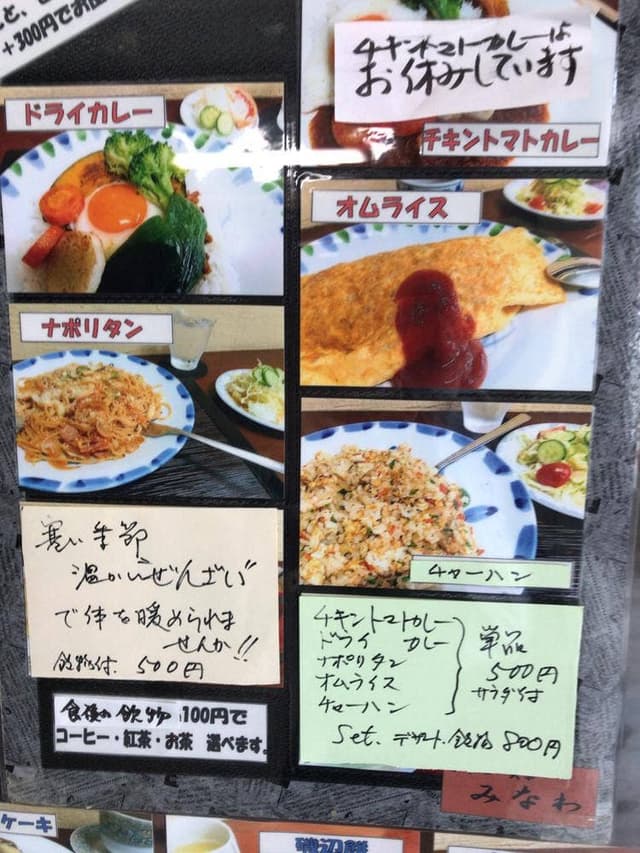 +300円でお
チキントマトカレーは
お休みしています
チキントマトカレー
ドライカレー
オムライス
ナポリタン
チャーハン
寒い季節
"温かいぜんざい"
で体を暖められま
せんか!!
飲物付 500円
チキントマトカレー
ドライカレー
ナポリタン
オムライス
チャーハン
単品
500円
サラダ付
Set. デザート. 飲物 800円
食後の飲物 100円で
コーヒー・紅茶・お茶 選べます。
みなわ
ケーキ
磯辺餅